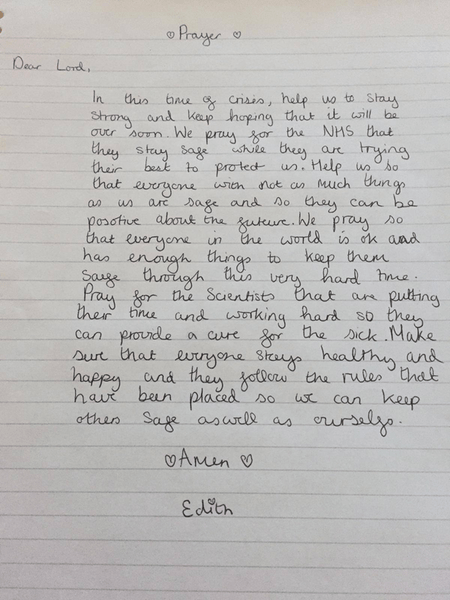 ♡ Prayer ♡
Dear Lord,
In this time of crisis, help us to stay
strong and keep hoping that it will be
over soon. We pray for the NHS that
they stay safe while they are trying
their best to protect us. Help us so
that everyone with not as much things
as us are safe and so they can be
posotive about the future. We pray so
that everyone in the world is ok and
has enough things to keep them
safe through this very hard time.
Pray for the Scientists that are putting
their time and working hard so they
can provide a cure for the sick. Make
sure that everyone stays healthy and
happy and they follow the rules that
have been placed so we can keep
others safe aswell as ourselfs.
♡ Amen ♡
Edith